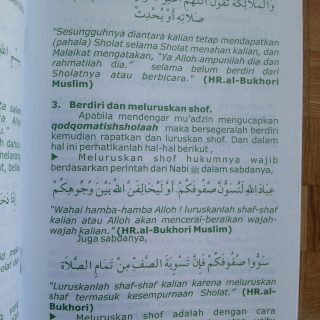 وَالْمَلَائِكَةُ تَقُولُ اللَّهُمَّ اغْفِرْ
صَلَاتِهِ أَوْ يُحْدِثْ
"Sesungguhnya diantara kalian tetap mendapatkan
(pahala) Sholat selama Sholat menahan kalian, dan
Malaikat mengatakan, "Ya Alloh ampunilah dia dan
rahmatilah dia." selama belum berdiri dari
Sholatnya atau berbicara." (HR.al-Bukhori
Muslim)
3. Berdiri dan meluruskan shof.
Apabila mendengar mu'adzin mengucapkan
qodqomatishsholaah maka bersegeralah berdiri
kemudian rapatkan dan luruskan shof. Dan dalam
hal ini perhatikanlah hal-hal berikut ,
► Meluruskan shof hukumnya wajib
berdasarkan perintah dari Nabi ﷺ dalam sabdanya,
عِبَادَ اللهِ لَتُسَوُّنَّ صُفُوفَكُمْ أَوْ لَيُخَالِفَنَّ اللهُ بَيْنَ وُجُوهِكُمْ
"Wahai hamba-hamba Alloh ! luruskanlah shaf-shaf
kalian atau Alloh akan mencerai-beraikan wajah-
wajah kalian." (HR.al-Bukhori Muslim)
Juga sabdanya,
سَوُّوا صُفُوفَكُمْ فَإِنَّ تَسْوِيَةَ الصَّفِّ مِنْ تَمَامِ الصَّلَاةِ
"Luruskanlah shaf-shaf kalian karena meluruskan
shaf termasuk kesempurnaan Sholat." (HR.al-
Bukhori)
► Meluruskan shof adalah dengan cara